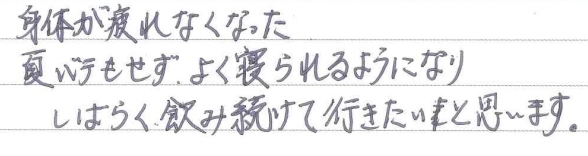 身体が疲れなくなった
夏バテもせず、よく寝られるようになり
しばらく、飲み続けて行きたいと思います。